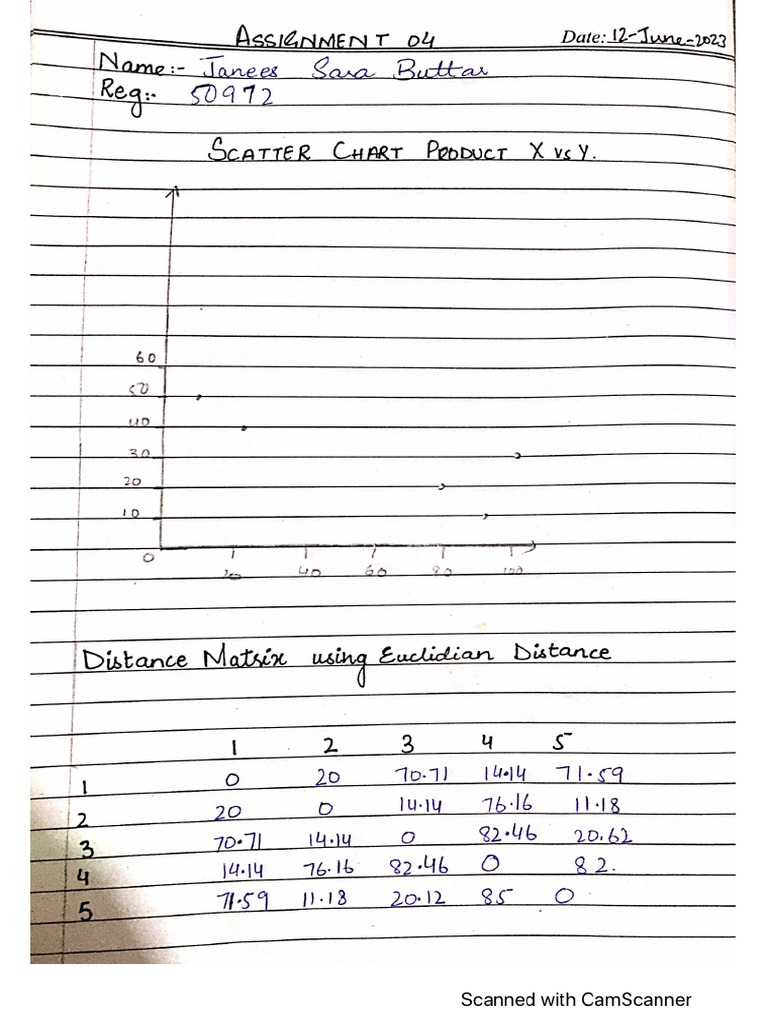 ASSIGNMENT 04 Date: 12-June-2023
Name:- Janees Sara Buttar
Reg:- 50972
SCATTER CHART PRODUCT X vs Y.
60
50
40
30
20
10
0
20 40 60 80 100
Distance Matrix using Euclidian Distance
1 2 3 4 5
1 0 20 70.71 14.14 71.59
2 20 0 14.14 76.16 11.18
3 70.71 14.14 0 82.46 20.62
4 14.14 76.16 82.46 0 82.
5 71.59 11.18 20.12 85 0
Scanned with CamScanner